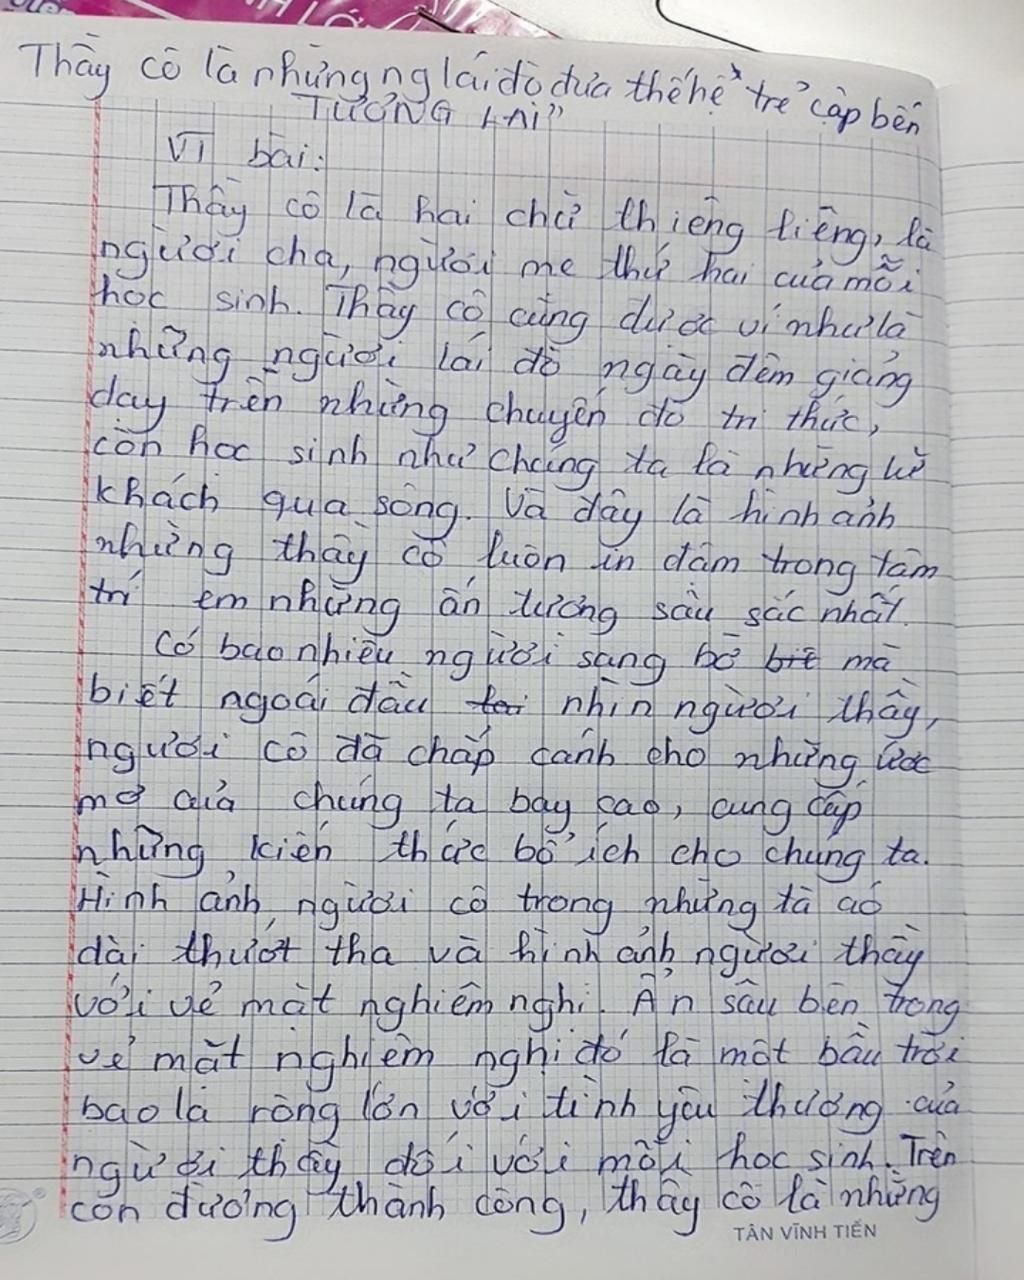 Thầy cô là những ng lái đò đưa thế hệ trẻ cập bến
TƯƠNG LAI"
VT bài:
Thầy cô là hai chữ thiêng liêng, là
người cha, người mẹ thứ hai của mỗi
học sinh. Thầy cô cũng được ví như là
những người lái đò ngày đêm giảng
dạy trên những chuyến đò tri thức,
còn học sinh như chúng ta là những kẻ
khách qua sông. Và đây là hình ảnh
những thầy cô luôn in đậm trong tâm
trí em những ấn tượng sâu sắc nhất.
Có bao nhiêu người sang bờ mà
biết ngoái đầu nhìn người thầy,
người cô đã chắp cánh cho những ước
mơ của chúng ta bay cao, cung cấp
những kiến thức bổ ích cho chúng ta.
Hình ảnh người cô trong những tà áo
dài thướt tha và hình ảnh người thầy
với vẻ mặt nghiêm nghị. Ẩn sâu bên trong
vẻ mặt nghiêm nghị đó là một bầu trời
bao la rộng lớn với tình yêu thương của
người thầy đối với mỗi học sinh. Trên
con đường thành công, thầy cô là những
TÂN VĨNH TIẾN